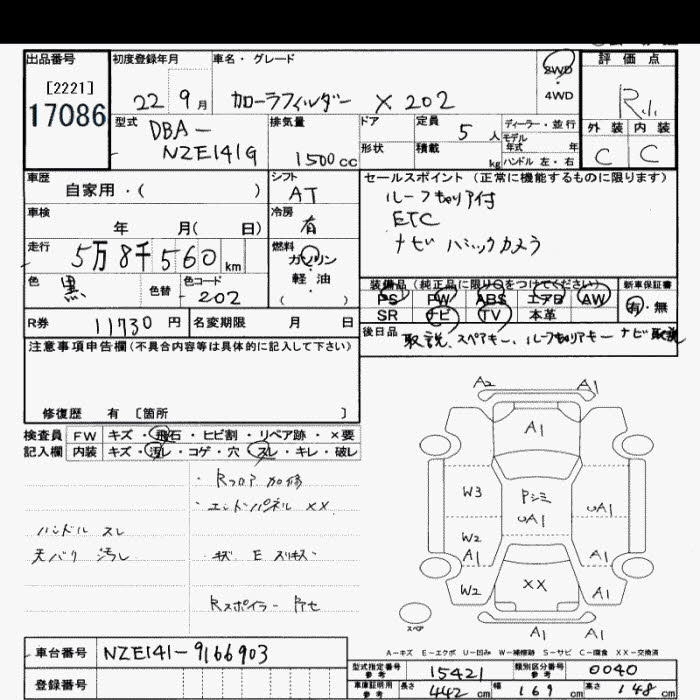 出品番号 初度登録年月 車名・グレード 2WD 評価点
[2221] 4WD
17086 22 9月 カローラフィルダー X 202 R小
型式 DBA-NZE141G 排気量 1500cc ドア 定員 5人 ディーラー・並行 外装 内装
形状 積載 kg モデル年式 年 C C
ハンドル 左・右
車歴 自家用・( ) シフト AT セールスポイント(正常に機能するものに限ります)
車検 年 月( 日) 冷房 有 ルーフキャリア付
ETC
走行 5万8千560km 燃料 ガソリン ナビ バックカメラ
軽油・( )
色 黒 色替 色コード 202 装備品(純正品に限り○をつけてください) 新車保証書
PS PW ABS エアB AW 有・無
R券 11730円 名変期限 月 日 SR ナビ TV 本革
注意事項申告欄(不具合内容等は具体的に記入して下さい) 後日品 取説、スペアキー、ルーフキャリアキー ナビ取説
修復歴 有 [箇所 ]
検査員 FW キズ・飛石・ヒビ割・リペア跡・×要
記入欄 内装 キズ・汚レ・コゲ・穴・スレ・キレ・破レ
・Rフロア加修
・エンドパネル XX
ハンドル スレ
天バリ 汚レ ・キズ E スリキズ
Rスポイラー Pアセ
A2 A1
A1
W3 Pシミ UA1
UA1
W2
A1 A1
W2 XX A1
スペア A1 A1
A-キズ E-エクボ U-凹み W-補修跡 S-サビ C-腐食 XX-交換済
車台番号 NZE141-9166903
登録番号
型式指定番号 参考 15421 類別区分番号 参考 0040
車庫証明用 参考 長さ 442cm 幅 169cm 高さ 148cm